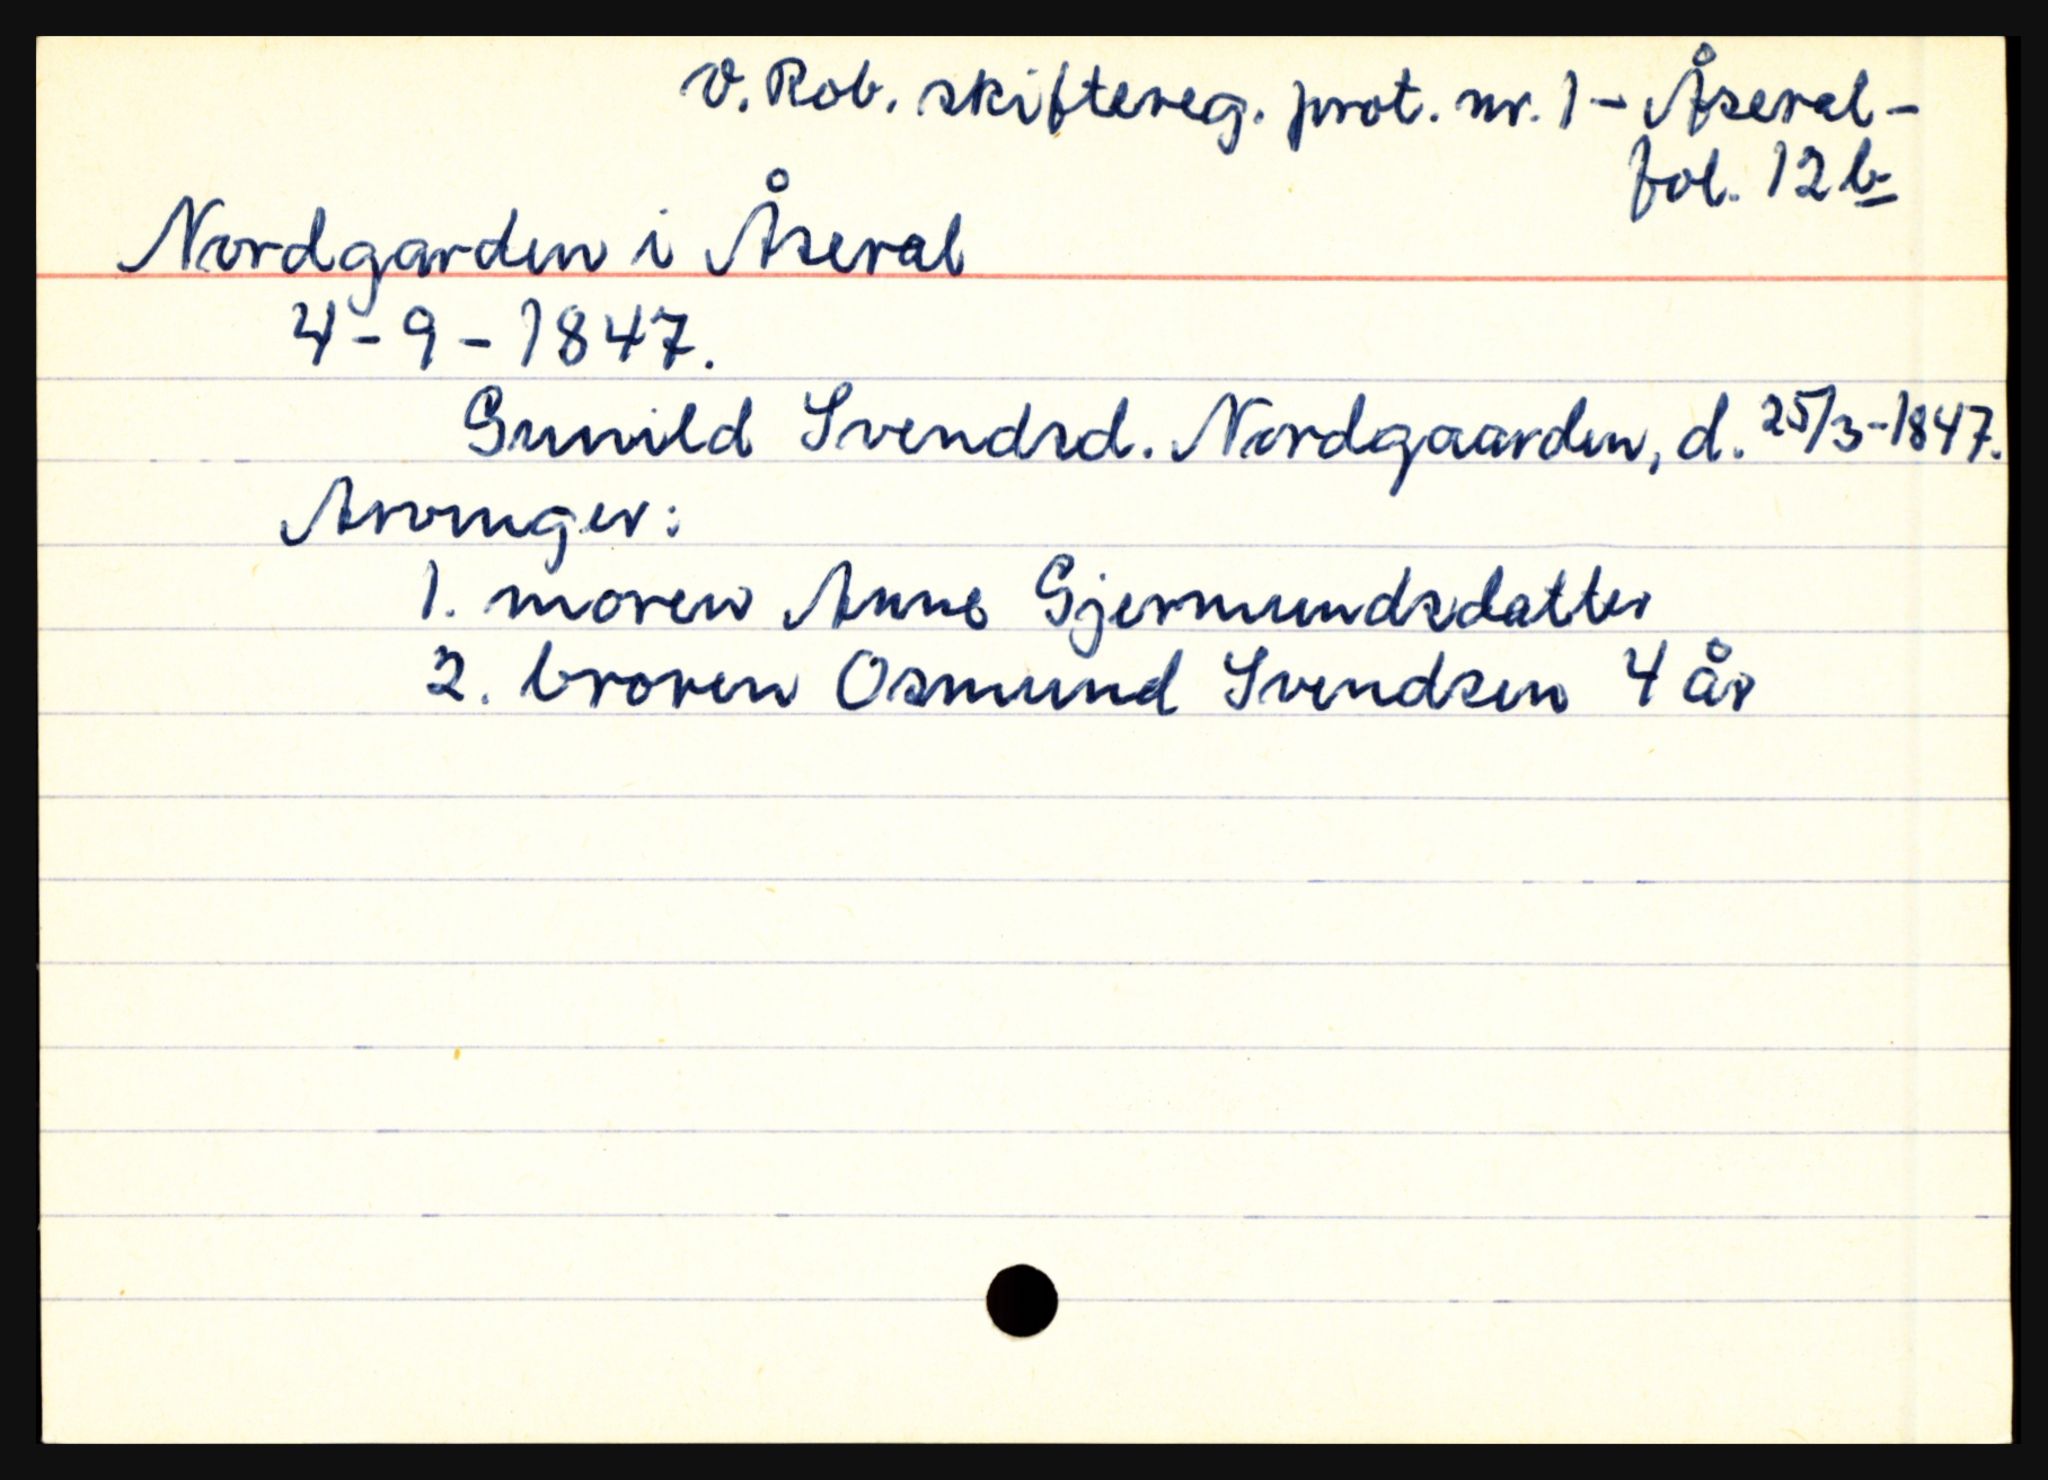 V. Rob. skiftereg. prot. nr. 1 - Åseral -
fol. 12b
Nordgarden i Åseral
4-9-1847.
Gunild Svendsd. Nordgaarden, d. 25/3-1847.
Arvinger:
1. moren Anne Gjermundsdatter
2. broren Osmund Svendsen 4 år